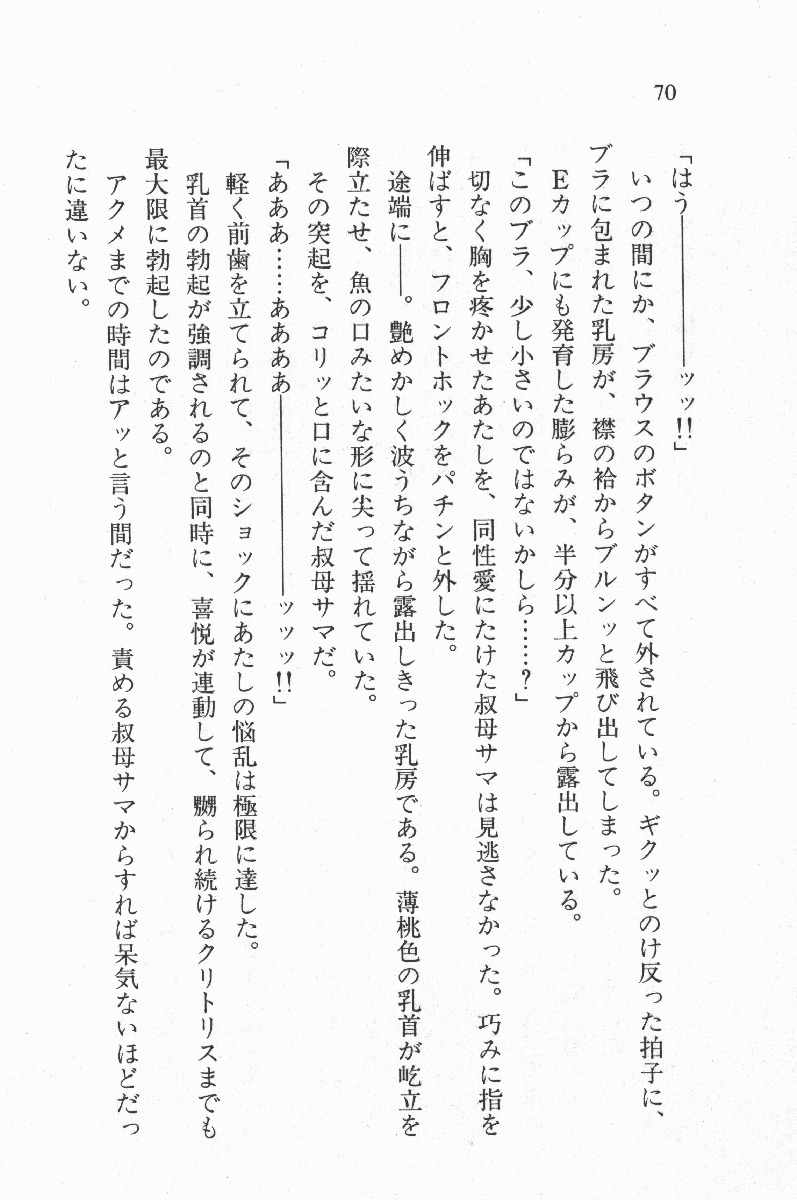 70
「はう――――――ッッ!!」
いつの間にか、ブラウスのボタンがすべて外されている。ギクッとのけ反った拍子に、
ブラに包まれた乳房が、襟の袷からブルンッと飛び出してしまった。
Eカップにも発育した膨らみが、半分以上カップから露出している。
「このブラ、少し小さいのではないかしら……?」
切なく胸を疼かせたあたしを、同性愛にたけた叔母サマは見逃さなかった。巧みに指を
伸ばすと、フロントホックをパチンと外した。
途端に――。艶めかしく波うちながら露出しきった乳房である。薄桃色の乳首が屹立を
際立たせ、魚の口みたいな形に尖って揺れていた。
その突起を、コリッと口に含んだ叔母サマだ。
「あああ……ああああ――――――――ッッッ!!」
軽く前歯を立てられて、そのショックにあたしの悩乱は極限に達した。
乳首の勃起が強調されるのと同時に、喜悦が連動して、嬲られ続けるクリトリスまでも
最大限に勃起したのである。
アクメまでの時間はアッと言う間だった。責める叔母サマからすれば呆気ないほどだっ
たに違いない。